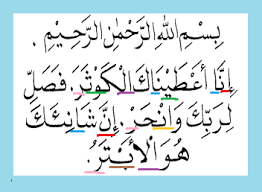 بِسْمِ اللَّهِ الرَّحْمَٰنِ الرَّحِيْمِ .
إِنَّا أَعْطَيْنَاكَ الْكَوْثَرَ. فَصَلِّ
لِرَبِّكَ وَانْحَرْ. إِنَّ شَانِئَكَ
هُوَ الْأَبْتَرُ.